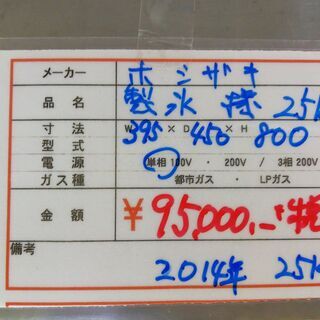 メーカー ホシザキ
品名 製氷機 25K
寸法 W 395 × D 450 × H 800
型式
電源 単相 100V ・ 200V / 3相 200V
ガス種 都市ガス ・ LPガス
金額 ¥95,000.-+税
備考
2014年 25K